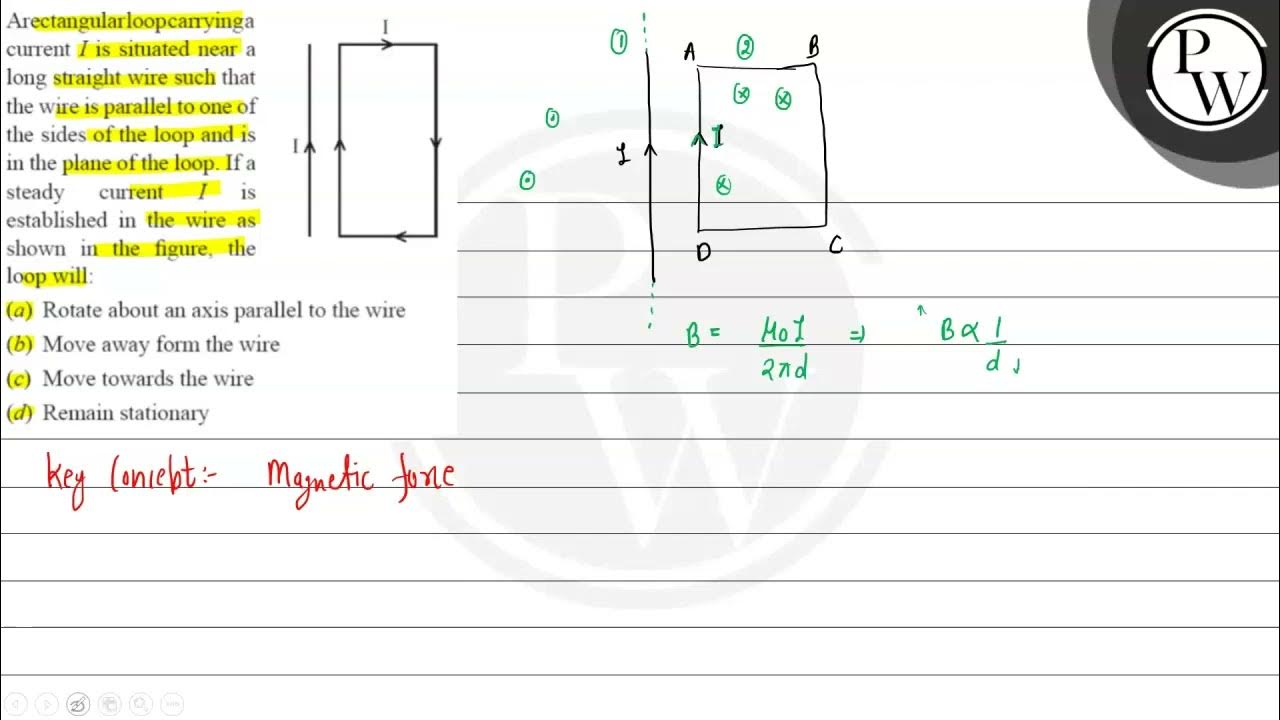 Arectangularloopcarryinga
current I is situated near a
long straight wire such that
the wire is parallel to one of
the sides of the loop and is
in the plane of the loop. If a
steady current I is
established in the wire as
shown in the figure, the
loop will:
I
I
(a) Rotate about an axis parallel to the wire
(b) Move away form the wire
(c) Move towards the wire
(d) Remain stationary
1
A 2 B
I
I
D C
B = μ0I / 2πd ⇒ B ∝ 1/d ↓
Key Concept:- Magnetic force
P
W
P
W